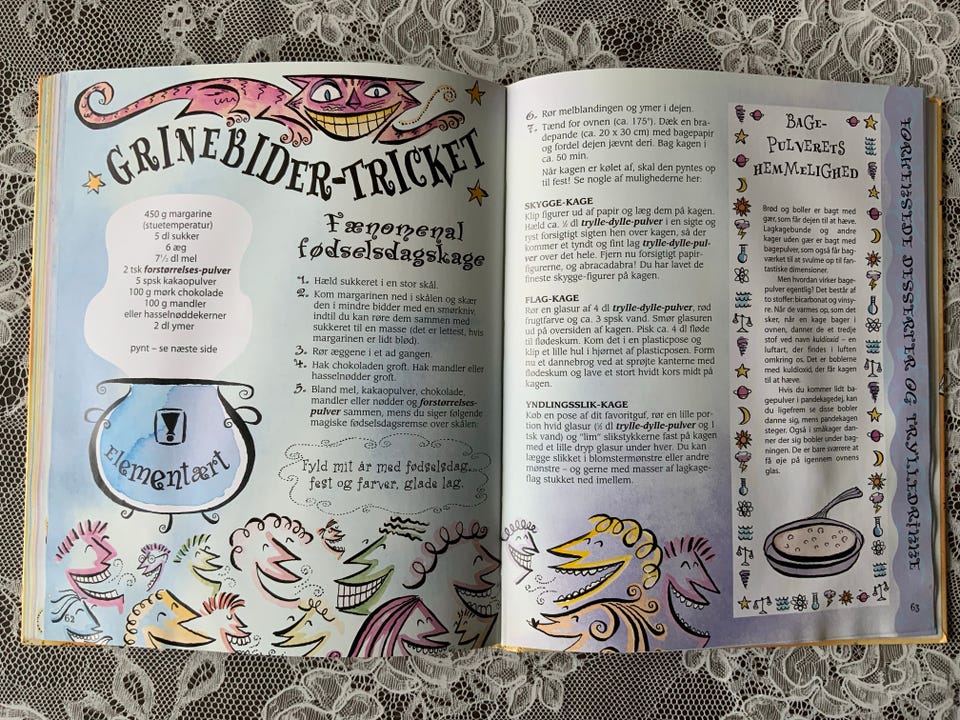 GRINEBIDER-TRICKET
450 g margarine
(stuetemperatur)
5 dl sukker
6 æg
7½ dl mel
2 tsk forstørrelses-pulver
5 spsk kakaopulver
100 g mørk chokolade
100 g mandler
eller hasselnøddekerner
2 dl ymer
pynt – se næste side
Elementært
Fænomenal
fødselsdagskage
1. Hæld sukkeret i en stor skål.
2. Kom margarinen ned i skålen og skær
den i mindre bidder med en smørkniv,
indtil du kan røre dem sammen med
sukkeret til en masse (det er lettest, hvis
margarinen er lidt blød).
3. Rør æggene i et ad gangen.
4. Hak chokoladen groft. Hak mandler eller
hasselnødder groft.
5. Bland mel, kakaopulver, chokolade,
mandler eller nødder og forstørrelses-
pulver sammen, mens du siger følgende
magiske fødselsdagsremse over skålen:
Fyld mit år med fødselsdag...
fest og farver, glade lag.
62
6. Rør melblandingen og ymer i dejen.
7. Tænd for ovnen (ca. 175°). Dæk en bra-
depande (ca. 20 x 30 cm) med bagepapir
og fordel dejen jævnt deri. Bag kagen i
ca. 50 min.
Når kagen er kølet af, skal den pyntes op
til fest! Se nogle af mulighederne her:
SKYGGE-KAGE
Klip figurer ud af papir og læg dem på kagen.
Hæld ca. ½ dl trylle-dylle-pulver i en sigte og
ryst forsigtigt sigten hen over kagen, så der
kommer et tyndt og fint lag trylle-dylle-pul-
ver over det hele. Fjern nu forsigtigt papir-
figurerne, og abracadabra! Du har lavet de
fineste skygge-figurer på kagen.
FLAG-KAGE
Rør en glasur af 4 dl trylle-dylle-pulver, rød
frugtfarve og ca. 3 spsk vand. Smør glasuren
ud på oversiden af kagen. Pisk ca. 4 dl fløde
til flødeskum. Kom det i en plasticpose og
klip et lille hul i hjørnet af plasticposen. Form
nu et dannebrog ved at sprøjte kanterne med
flødeskum og lave et stort hvidt kors midt på
kagen.
YNDLINGSSLIK-KAGE
Køb en pose af dit favoritguf, rør en lille por-
tion hvid glasur (½ dl trylle-dylle-pulver og 1
tsk vand) og "lim" slikstykkerne fast på kagen
med et lille dryp glasur under hver. Du kan
lægge slikket i blomstermønstre eller andre
mønstre – og gerne med masser af lagkage-
flag stukket ned imellem.
BAGE-
PULVERETS
HEMMELIGHED
Brød og boller er bagt med
gær, som får dejen til at hæve.
Lagkagebunde og andre
kager uden gær er bagt med
bagepulver, som også får bag-
værket til at svulme op til fan-
tastiske dimensioner.
Men hvordan virker bage-
pulver egentlig? Det består af
to stoffer: bicarbonat og vinsy-
re. Når de varmes op, som det
sker, når en kage bager i
ovnen, danner de et tredje
stof ved navn kuldioxid – en
luftart, der findes i luften
omkring os. Det er boblerne
med kuldioxid, der får kagen
til at hæve.
Hvis du kommer lidt ba-
gepulver i pandekagedej, kan
du ligefrem se disse bobler
danne sig, mens pandekagen
steger. Også i småkager dan-
ner der sig bobler under bag-
ningen. De er bare sværere at
få øje på igennem ovnens
glas.
63